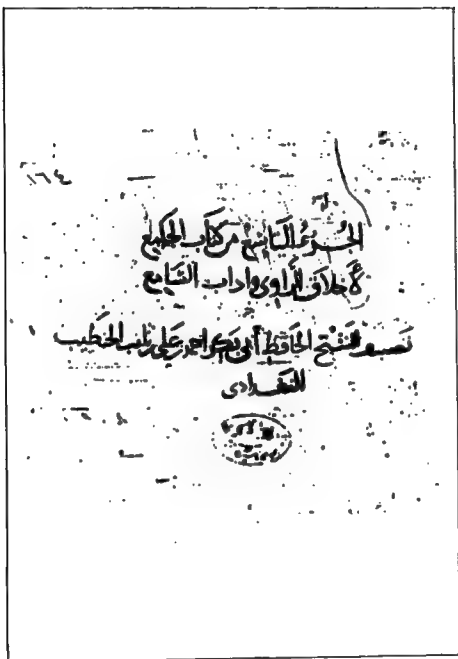 ١٦٤
الجزء التاسع من كتاب الجامع
لأخلاق الراوى واداب السامع
تصنيف الشيخ الحافظ أبى بكر احمد بن على بن ثابت الخطيب
البغدادى